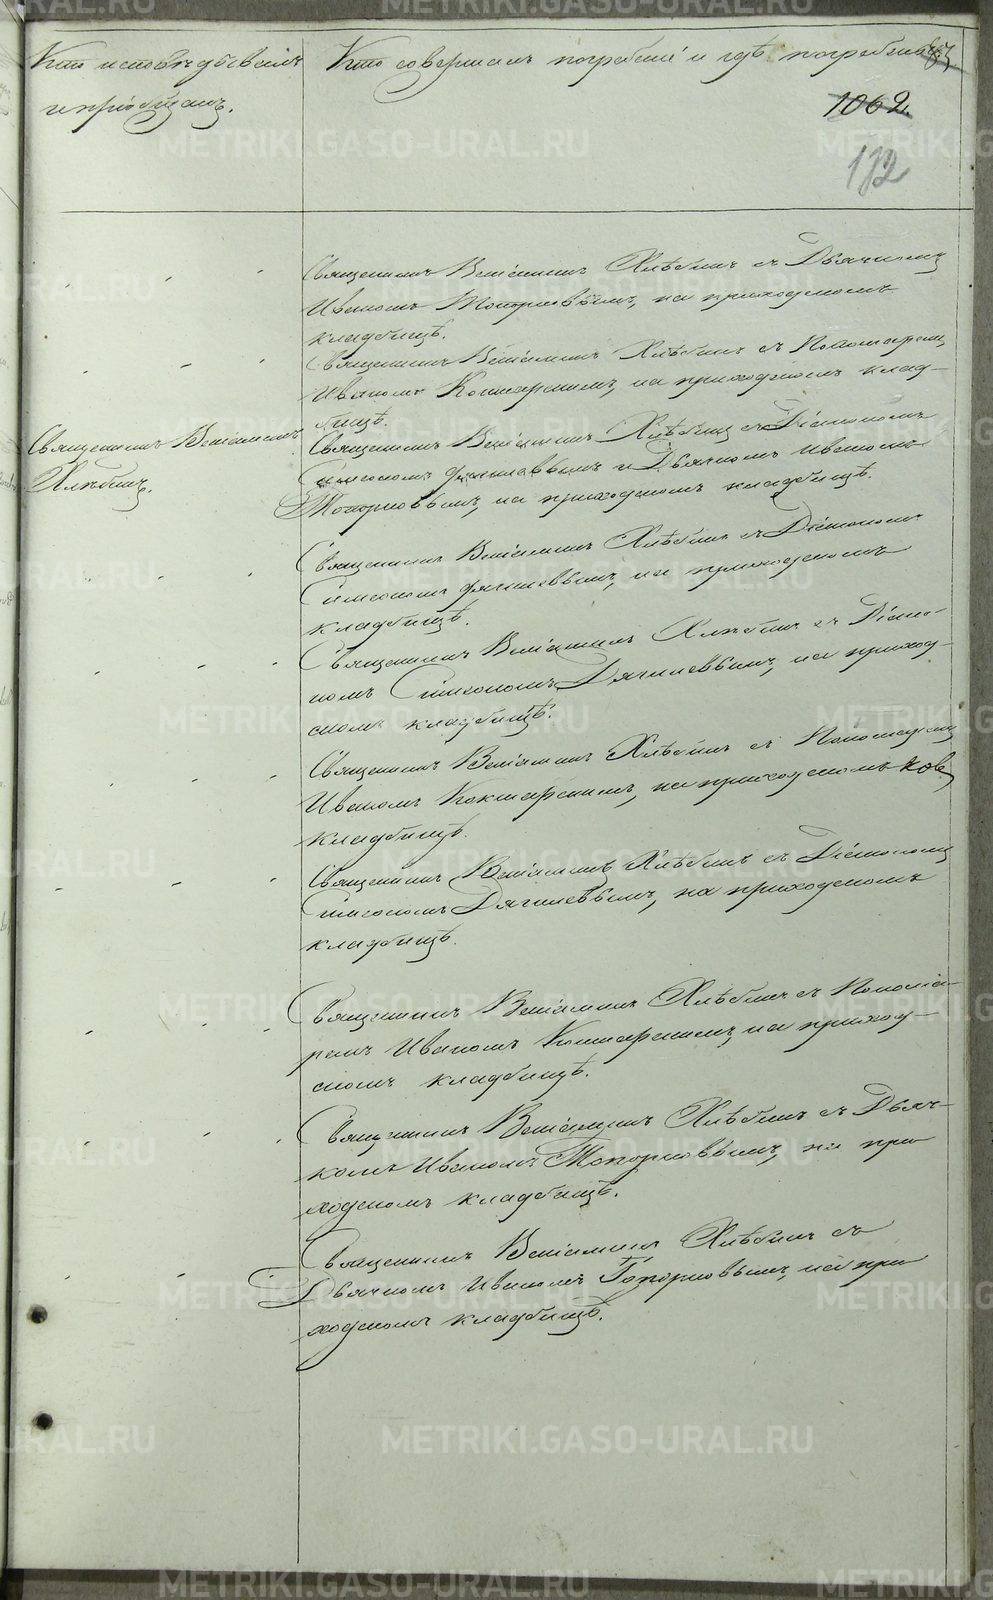 Кто исповѣдывалъ
и пріобщалъ.
Кто совершалъ погребеніе и гдѣ погребены
1062.
112
Священникъ Веніаминъ Хлѣбинъ съ Дьячкомъ
Иваномъ Топорковымъ, на приходскомъ
кладбищѣ.
Священникъ Веніаминъ Хлѣбинъ съ Пономаремъ
Иваномъ Кокшарскимъ, на приходскомъ клад-
бищѣ.
Священникъ Веніаминъ
Хлѣбинъ.
Священникъ Веніаминъ Хлѣбинъ съ Діакономъ
Симеономъ Дягилевымъ и Дьячкомъ Иваномъ
Топорковымъ, на приходскомъ кладбищѣ.
Священникъ Веніаминъ Хлѣбинъ съ Діакономъ
Симеономъ Дягилевымъ, на приходскомъ
кладбищѣ.
Священникъ Веніаминъ Хлѣбинъ съ Діако-
номъ Симеономъ Дягилевымъ, на приход-
скомъ кладбищѣ.
Священникъ Веніаминъ Хлѣбинъ съ Пономаремъ
Иваномъ Кокшарскимъ, на приходскомъ
кладбищѣ.
Священникъ Веніаминъ Хлѣбинъ съ Діакономъ
Симеономъ Дягилевымъ, на приходскомъ
кладбищѣ.
Священникъ Веніаминъ Хлѣбинъ съ Понома-
ремъ Иваномъ Кокшарскимъ, на приход-
скомъ кладбищѣ.
Священникъ Веніаминъ Хлѣбинъ съ Дьяч-
комъ Иваномъ Топорковымъ, на при
ходскомъ кладбищѣ.
Священникъ Веніаминъ Хлѣбинъ съ
Дьячкомъ Иваномъ Топорковымъ, на при
ходскомъ кладбищѣ.
METRIKI.GASO-URAL.RU